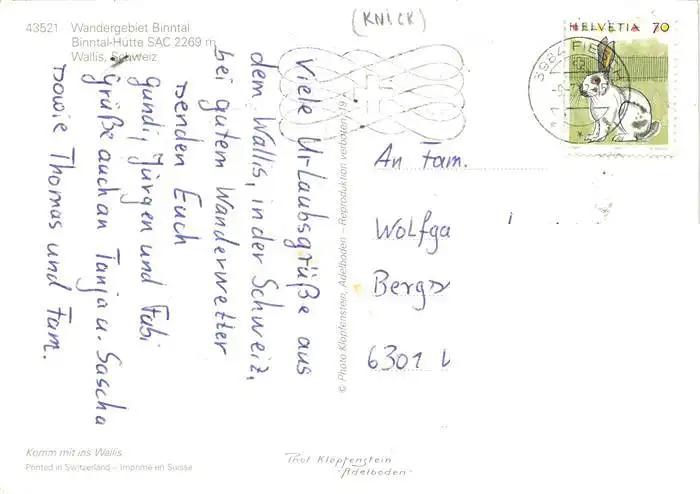 (KNICK)
43521 Wandergebiet Binntal
Binntal-Hütte SAC 2269 m
Wallis, Schweiz
HELVETIA 70
3984 FIE
Viele Urlaubsgrüße aus
dem Wallis, in der Schweiz,
bei gutem Wanderwetter
senden Euch
gundi, Jürgen und Fabi
grüße auch an Tanja u. Sascha
sowie Thomas und Fam.
© Photo Klopfenstein, Adelboden – Reproduktion verboten 19
An Fam.
Wolfga
Berg
6301
Komm mit ins Wallis
Printed in Switzerland – Imprimé en Suisse
Phot Klopfenstein
-Adelboden-